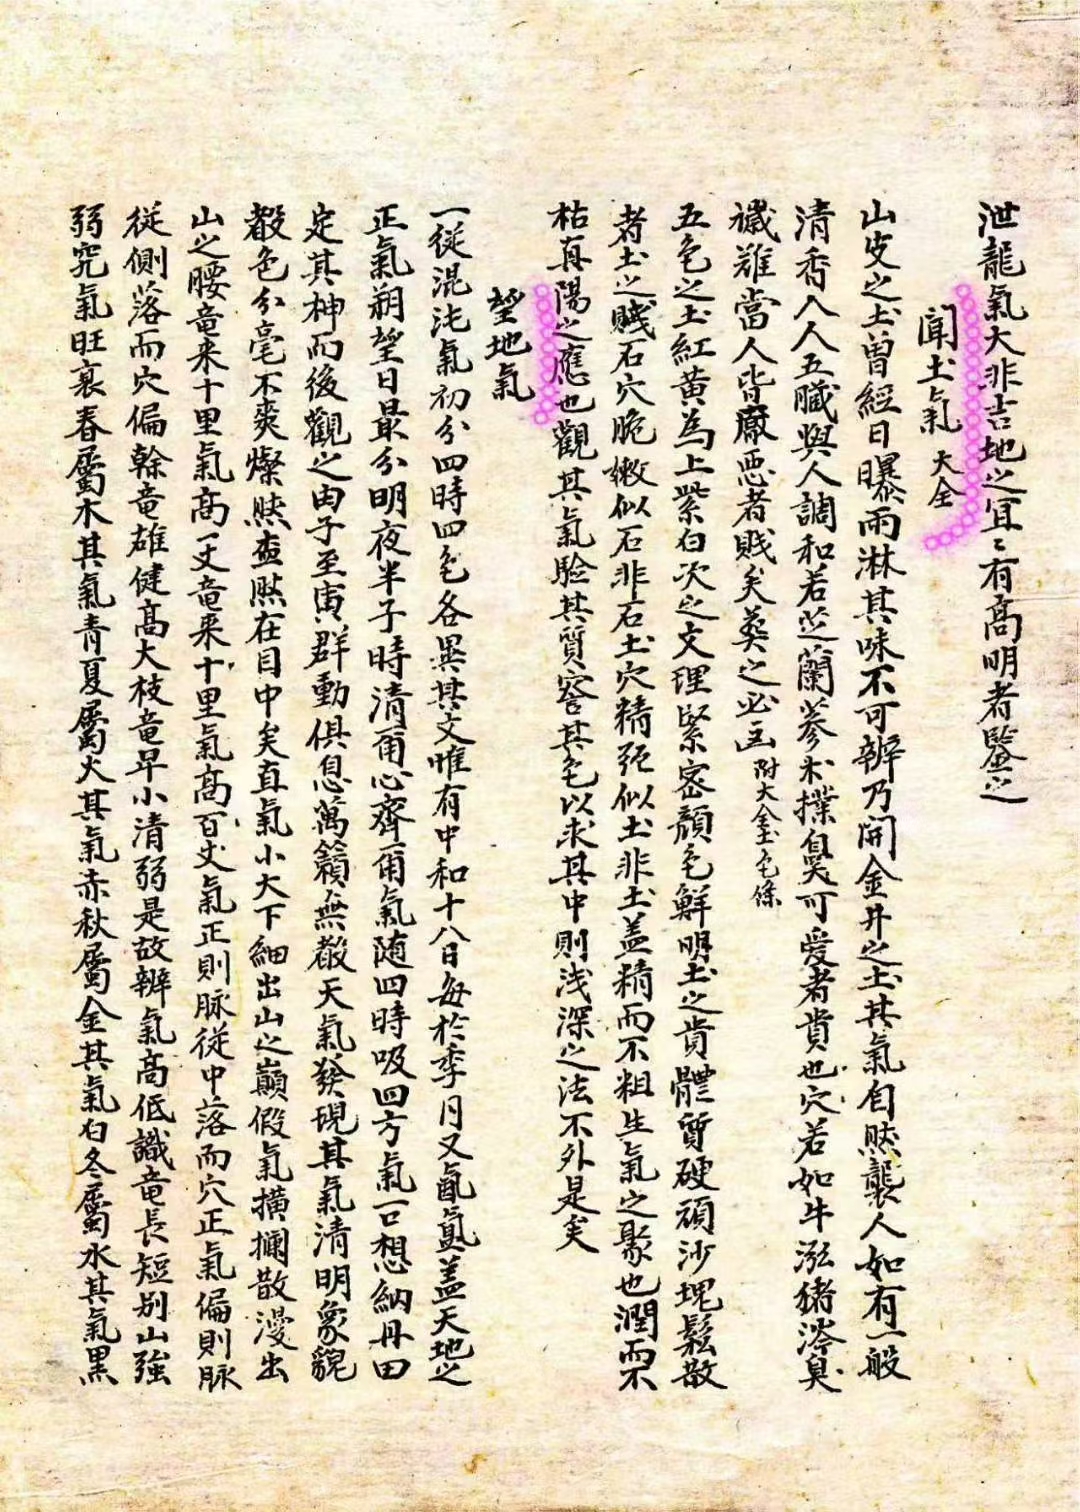 泄龍氣大非吉地之冝〻有髙明者鑒之
聞土氣 大全
山皮之土曾經日曝雨淋其味不可辨乃開金井之土其氣自然襲人如有一般
清香入人五臟與人調和若芝蘭參朮撲臭可爱者貴也穴若如牛泓猪涔臭
難當人皆厭惡者贱矣葬之必凶 附大全土色條
五色之土紅黄為上紫白次之文理緊宻顔色鮮明土之貴體質硬頑沙塊鬆散
者土之贱石穴脆嫩似石非石土穴精强似土非土盖精而不粗生氣之聚也潤而不
枯真陽之應也觀其氣驗其質察其色以求其中則浅深之法不外是矣
望地氣
一從混沌氣初分四時四色各異其文惟有中和十八日每於季月又氤氲盖天地之
正氣朔望日最分明夜半子時清甭心齊甭氣随四時吸四方氣一口想納丹田
定其神而後觀之由子至寅群動俱息萬籟無聲天氣發現其氣清明象貌
聲色分毫不爽燦然盡然在目中矣直氣小大下細出山之巔假氣横攔散漫出
山之腰竜来十里氣髙一丈竜来十里氣髙百丈氣正則脉從中落而穴正氣偏則脉
從側落而穴偏榦竜雄健髙大枝竜早小清弱是故辨氣髙低識竜長短别山強
弱究氣旺衰春屬木其氣青夏屬火其氣赤秋屬金其氣白冬屬水其氣黒